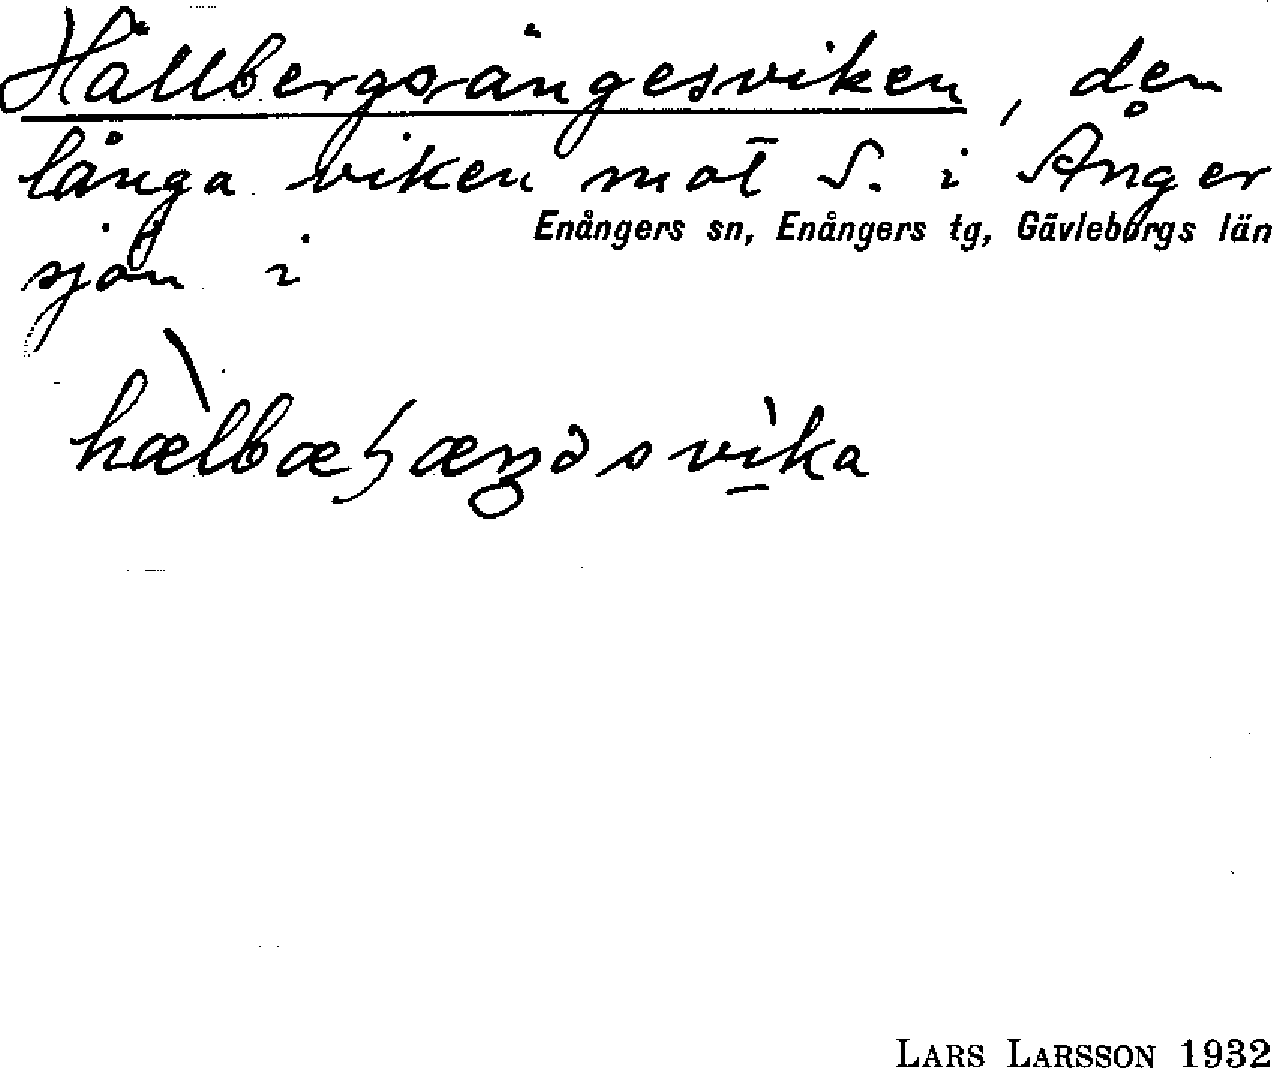 Hällbergsängesviken, den
långa viken mot S. i Ånger
Enångers sn, Enångers tg, Gävleborgs län
sjön i
LARS LARSSON 1932